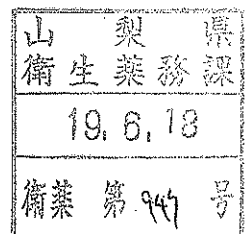 山梨県
衛生薬務課
19.6.18
衛薬 第 947 号